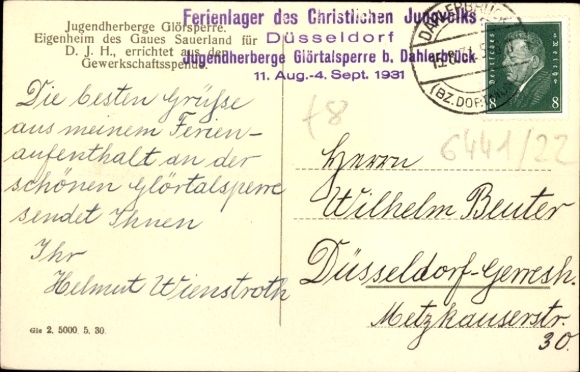 Jugendherberge Glörsperre.
Eigenheim des Gaues Sauerland für
D. J. H., errichtet aus der
Gewerkschaftsspende.
Ferienlager des Christlichen Jungvolks
Düsseldorf
Jugendherberge Glörtalsperre b. Dahlerbrück
11. Aug.-4. Sept. 1931
DAHLERBRÜCK
(BZ. DORTMUND)
Deutsches Reich
8 8
f8
6441/22
Die besten Grüsse
aus meinem Ferien-
aufenthalt an der
schönen Glörtalsperre
sendet Ihnen
Ihr
Helmut Wienstroth
Herrn
Wilhelm Beuter
Düsseldorf-Gerresh.
Metzkauserstr.
30.
Gle 2. 5000. 5. 30.